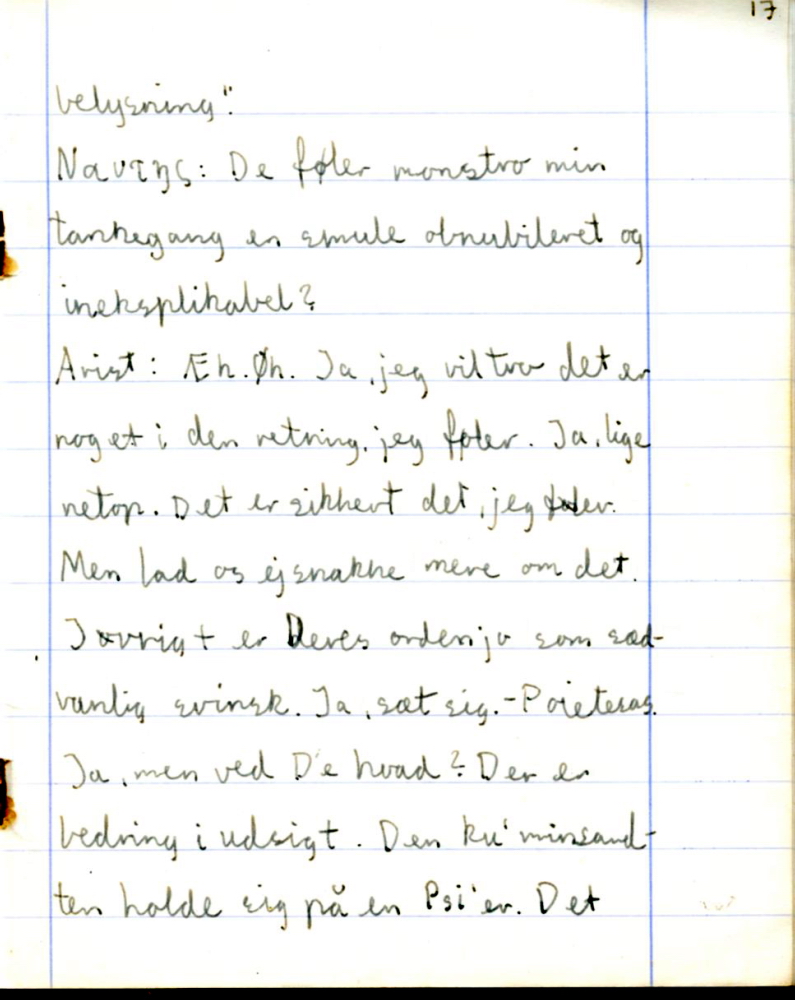 17
belysning".
Ναυτης: De føler monstro min
tankegang en smule obnubileret og
ineksplikabel?
Arist: Æh. Øh. Ja, jeg vil tro det er
noget i den retning, jeg føler. Ja, lige
netop. Det er sikkert det, jeg føler.
Men lad os ej snakke mere om det.
Iøvrigt er Deres orden jo som sæd-
vanlig svinsk. Ja, sæt sig. - Poietesas.
Ja, men ved De hvad? Der er
bedring i udsigt. Den ku' minsand-
ten holde sig på en Psi'er. Det